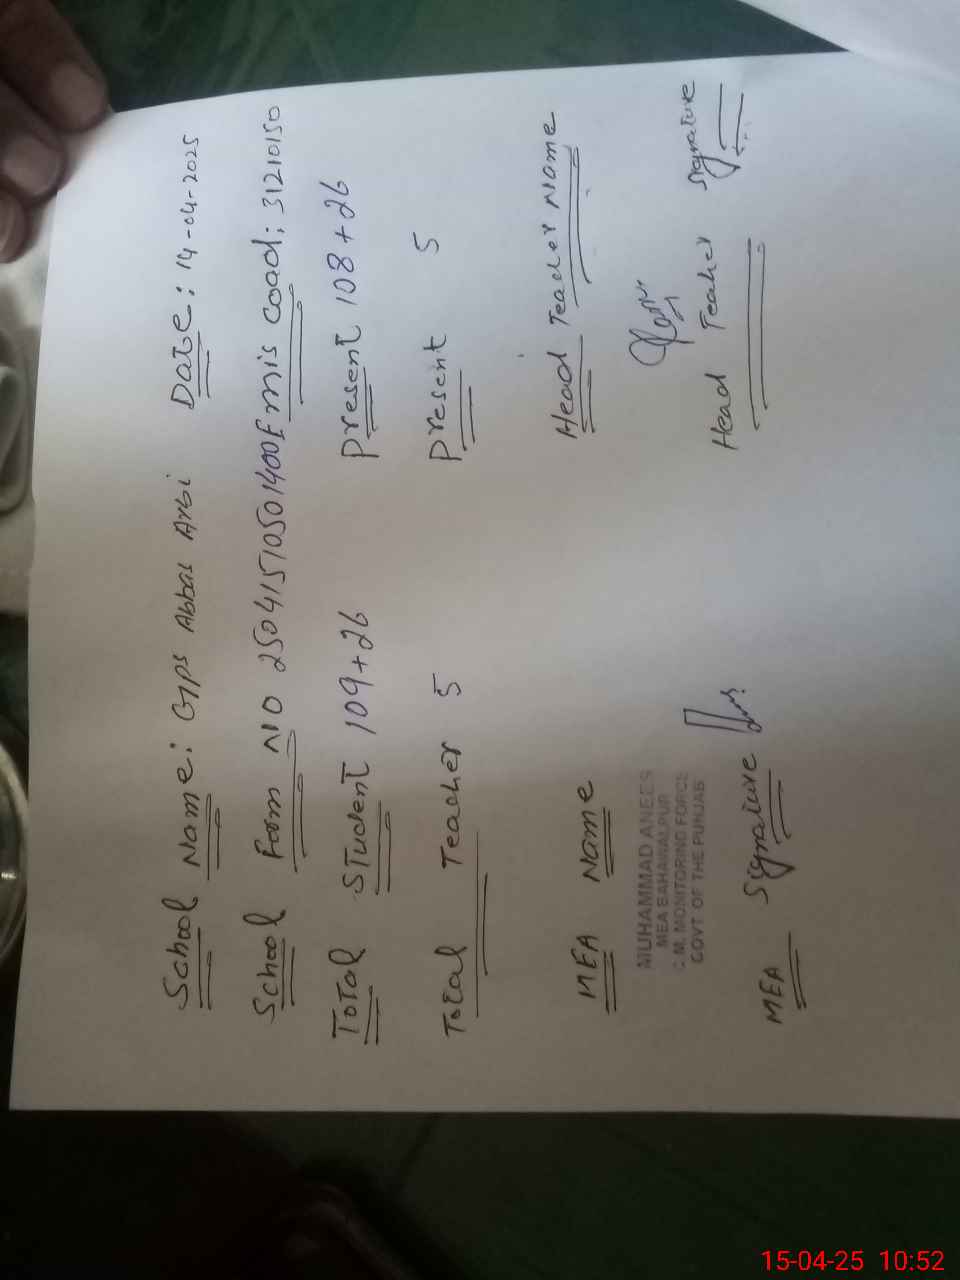 School Name: GPS Abbas Arbi Date: 14-04-2025
School Form NO 25041510501400 Emis coad: 31210150
Total Student 109+26 Present 108+26
Total Teacher 5 Present 5
MEA Name Head Teacher Name
MUHAMMAD ANEES
MEA BAHAWALPUR
C.M. MONITORING FORCE
GOVT OF THE PUNJAB
MEA Signature Head Teaher Signature
15-04-25 10:52